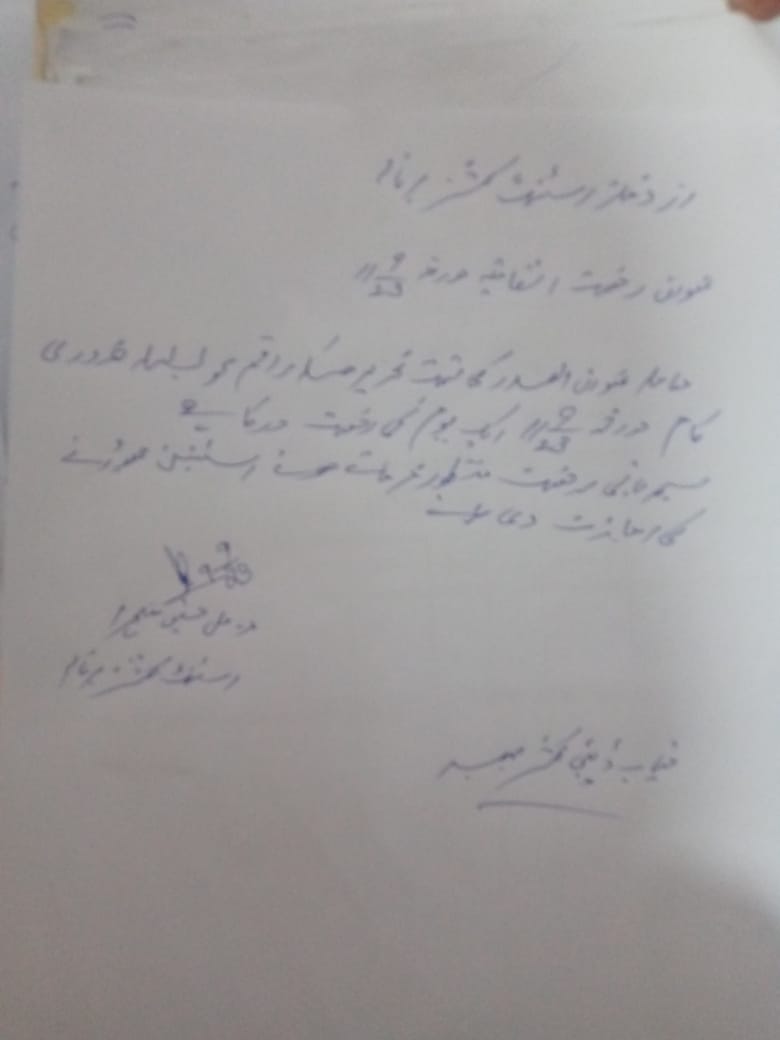 از دفتر اسسٹنٹ کمشنر برنالہ
عنوان رخصت اتفاقیہ مورخہ 11/9/23
معاملہ عنوان الصدر کی نسبت تحریر ہیکہ راقم کو بسلسلہ ضروری
کام مورخہ 11/9/23 ایک یوم کی رخصت درکار ہے
مہربانی رخصت منظور فرماتے ہوئے اسٹیشن چھوڑنے
کی اجازت دی جائے
اسسٹنٹ کمشنر برنالہ
جناب ڈپٹی کمشنر صاحب